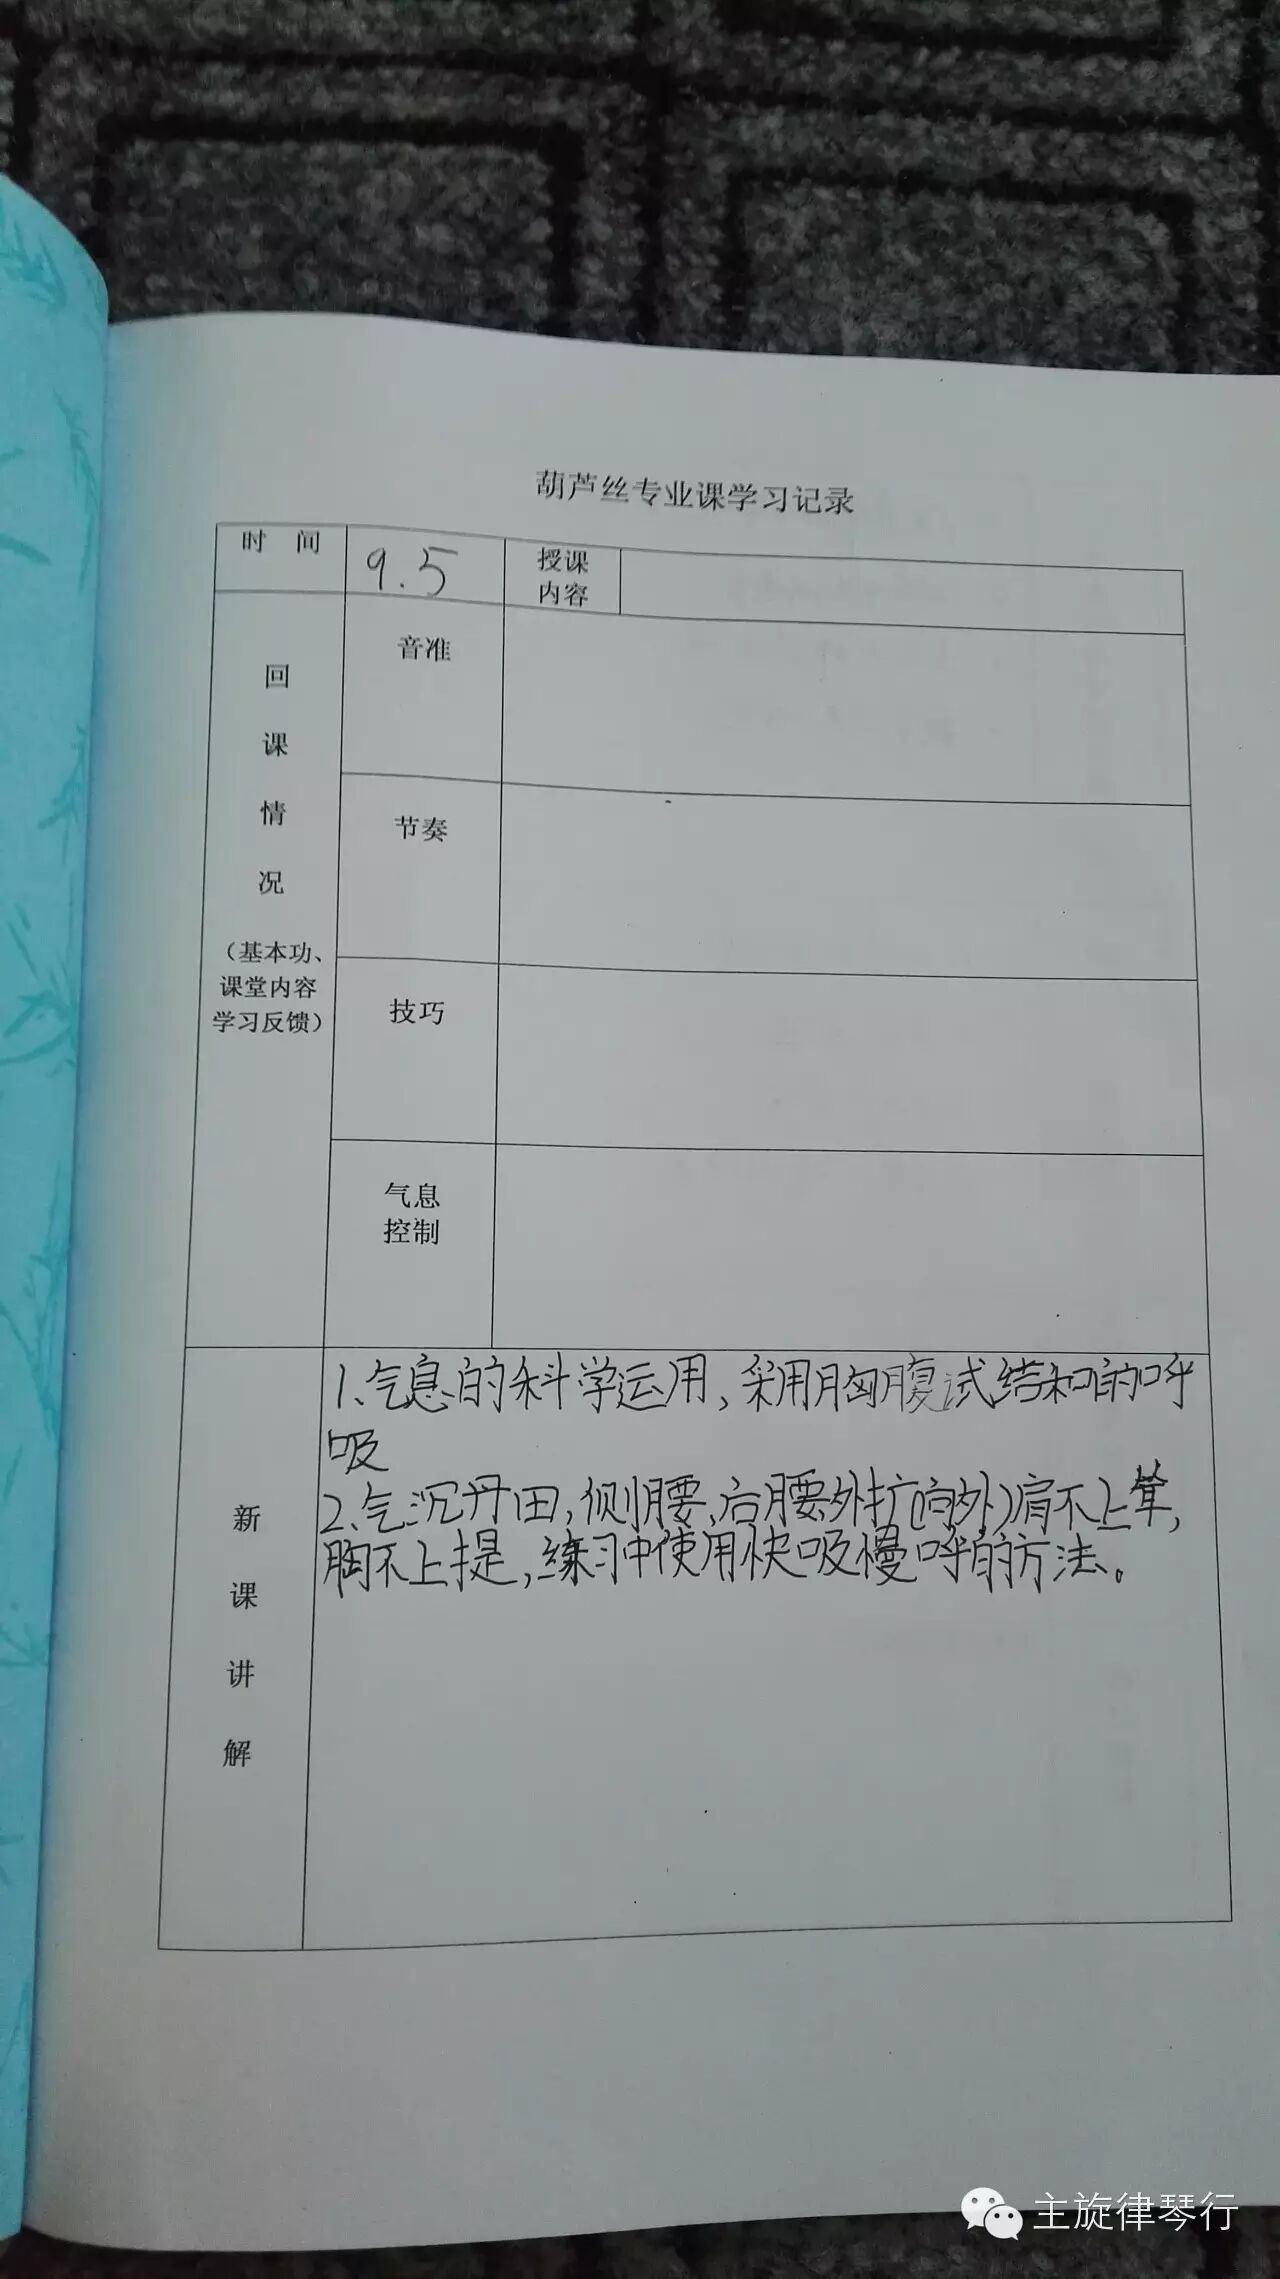 葫芦丝专业课学习记录
时 间
9.5
授课
内容
回
课
情
况
（基本功、
课堂内容
学习反馈）
音准
节奏
技巧
气息
控制
新
课
讲
解
1、气息的科学运用，采用胸腹试结和的呼
吸
2、气沉丹田，侧腰、后腰外扩(向外)肩不上耸，
胸不上提，练习中使用快吸慢呼的方法。
主旋律琴行